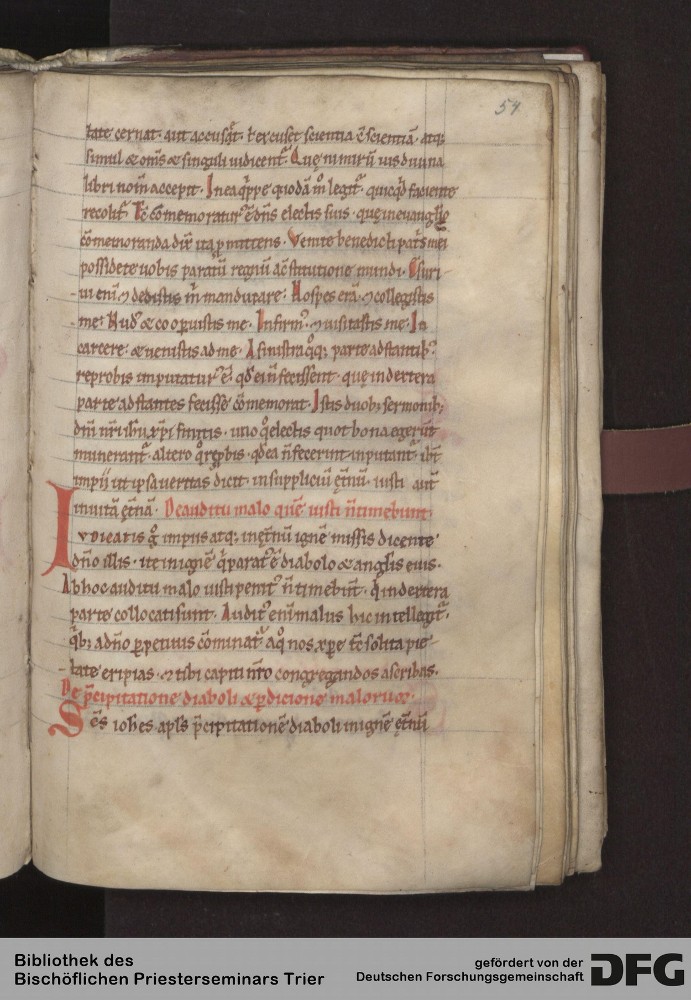 54
tate cernat. aut accusat. t excuset scientia cscientiā. atq;
simul & om̄s & singuli iudicent᷑. Quę nimirū uis diuina
libri nom̄ accepit. In ea q̇ppe quodā m̊ legit᷑. quicq̇d faciente
recolit᷑. Tc̄ cōmemoratur᷑ ē dn̄s electis suis. quę in euanglio
cōmemoranda dix̄ ita p̄mittens. Venite benedicti pat's mei
possidete uobis paratū regnū ac̄stitutione mundi. Esuri-
ui enī ⁊ dedistis m̄ manducare. Hospes erā. ⁊ collegistis
me. Nud' & cooꝑuistis me. Infirm'. ⁊ uisitastis me. In
carcere. & uenistis ad me. A sinistra q̊q; parte adstantib'
reprobis imputatur᷑ ē. qd̄ ea n̄ fecissent. quę in dextera
parte adstantes fecisse cōmemorat. Istis duob; sermonib;
dn̄i nr̄i ih̄u xp̄i finitis. uno q̊ electis quot bona egerūt
munerant᷑. altero q̊ rep̱bis. qd̄ ea n̄ fecerunt inputant᷑. ibt̄
impii ut ipsa ueritas dicit. in suppliciū ęt̄nū. iusti aut̄
in uitā ęt̄nā. De auditu malo quē iusti n̄ timebunt.
Iudicatis g̊ impiis atq; in ęt̄nū ignē missis dicente
dn̄o illis. ite in ignē q̇ parat' ē diabolo & angl̄is eius.
Ab hoc auditu malo iusti penit' n̄ timebūt. q̇ in dextera
parte collocati sunt. Audit' enī malus hic intellegit᷑.
q̇b; a dn̄o ꝑpetuus cōminat᷑. a q̊ nos xp̄e t̄c solita pie-
tate eripias. ⁊ tibi capiti nr̄o congregandos ascribas.
De p̄cipitatione diaboli & ꝑdicione maloruꝫ.
Sc̄s ioh̄es apl̄s p̄cipitationē diaboli in ignē ęt̄nū
Bibliothek des
Bischöflichen Priesterseminars Trier
gefördert von der
Deutschen Forschungsgemeinschaft
DFG